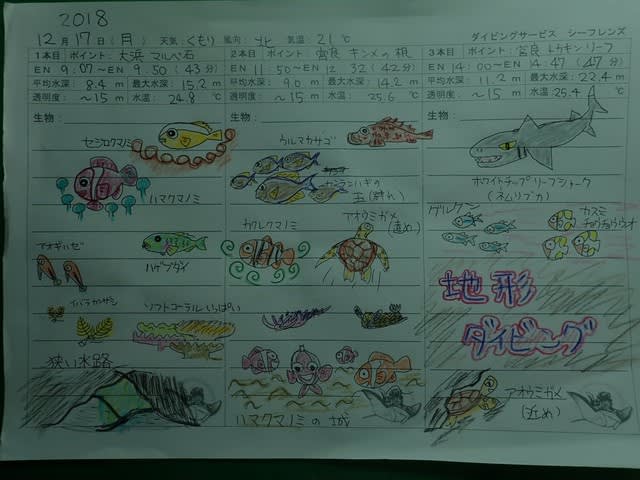 2018
12月17日(月) 天気:くもり 風向:北 気温:21℃ ダイビングサービス シーフレンズ
1本目 ポイント:大浜 マルベ石
EN 9:07~EN 9:50 (43分)
平均水深: 8.4 m 最大水深: 15.2 m
透明度: ~15 m 水温: 24.8 ℃
生物:
セジロクマノミ
ハマクマノミ
アオギハゼ
ハゲブダイ
イバラカンザシ
ソフトコーラルいっぱい
狭い水路
2本目 ポイント:宮良 キンメの根
EN 11:50~EN 12:32 (42分)
平均水深: 9.0 m 最大水深: 14.2 m
透明度: ~15 m 水温: 25.6 ℃
生物:
ウルマカサゴ
玉(群れ)
カクレクマノミ
アオウミガメ
(遠め)
ハマクマノミの城
3本目 ポイント:宮良 トウキンリーフ
EN 14:00~EN 14:47 (47分)
平均水深: 11.2 m 最大水深: 22.4 m
透明度: ~15 m 水温: 25.4 ℃
生物:
ホワイトチップリーフシャーク
(ネムリブカ)
グルクン
カスミ
チョウチョウウオ
地形
ダイビング
アオウミガメ
(近め)